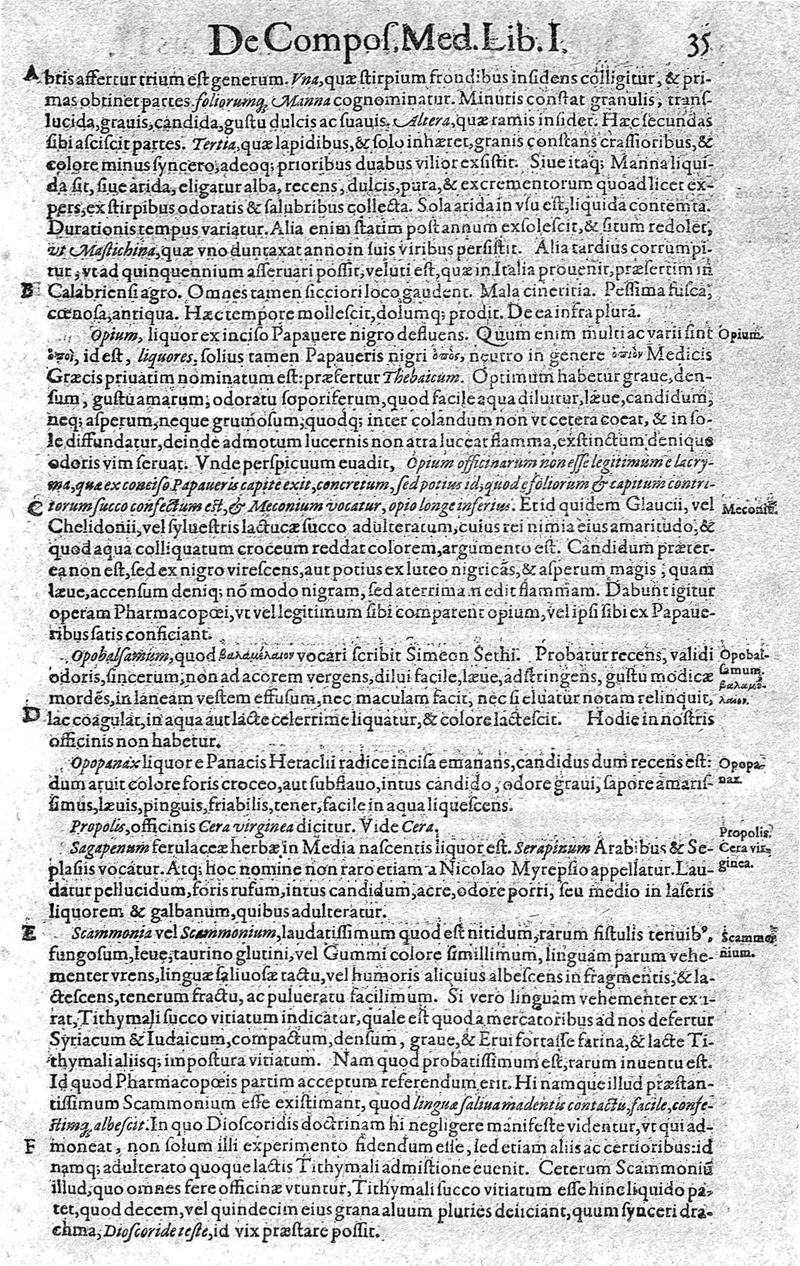 De Compos. Med. Lib. I. 35
A bris affertur trium est generum. Vna, quæ stirpium frondibus insidens colligitur, & pri-
mas obtinet partes, foliorumq; Manna cognominatur. Minutis constat granulis, trans-
lucida, grauis, candida, gustu dulcis ac suauis. Altera, quæ ramis insidet. Hæc secundas
sibi asciscit partes. Tertia, quæ lapidibus, & solo inhæret, granis constans crassioribus, &
colore minus syncero, adeoq; prioribus duabus vilior exsistit. Siue itaq; Manna liqui-
da sit, siue arida, eligatur alba, recens, dulcis, pura, & excrementorum quoad licet ex-
pers, ex stirpibus odoratis & salubribus collecta. Sola arida in vsu est, liquida contemta.
Durationis tempus variatur. Alia enim statim post annum exsolescit, & situm redolet,
vt Mastichina, quæ vno duntaxat anno in suis viribus persistit. Alia tardius corrumpi-
tur, vt ad quinquennium asseruari possit, veluti est, quæ in Italia prouenit, præsertim in
B Calabriensi agro. Omnes tamen sicciori loco gaudent. Mala cineritia. Pessima fusca,
cœnosa, antiqua. Hæc tempore mollescit, dolumq; prodit. De ea infra plura.
Opium, liquor ex inciso Papauere nigro defluens. Quum enim multi ac varii sint
Opium.
ὀποὶ, id est, liquores, solius tamen Papaueris nigri ὀπὸς, neutro in genere ὄπιον Medicis
Græcis priuatim nominatum est: præfertur Thebaicum. Optimum habetur graue, den-
sum, gustu amarum, odoratu soporiferum, quod facile aqua diluitur, læue, candidum,
neq; asperum, neque grumosum, quodq; inter colandum non vt cetera coeat, & in so-
le diffundatur, deinde admotum lucernis non atra luceat flamma, exstinctum denique
odoris vim seruat. Vnde perspicuum euadit, Opium officinarum non esse legitimum e lacry-
ma, quæ ex conciso Papaueris capite exit, concretum, sed potius id, quod e foliorum & capitum contri-
C torum succo confectum est, & Meconium vocatur, opio longe inferius. Et id quidem Glaucii, vel
Meconiū.
Chelidonii, vel syluestris lactucæ succo adulteratum, cuius rei nimia eius amaritudo, &
quod aqua colliquatum croceum reddat colorem, argumento est. Candidum præter-
ea non est, sed ex nigro virescens, aut potius ex luteo nigricās, & asperum magis, quam
læue, accensum deniq; nō modo nigram, sed aterrimam edit flammam. Dabunt igitur
operam Pharmacopœi, vt vel legitimum sibi comparent opium, vel ipsi sibi ex Papaue-
ribus satis conficiant.
Opobalsamum, quod βαλσαμέλαιον vocari scribit Simeon Sethi. Probatur recens, validi
Opobal-
odoris, sincerum, non ad acorem vergens, dilui facile, læue, adstringens, gustu modicæ
samum.
βαλσαμέ-
mordēs, in laneam vestem effusum, nec maculam facit, nec si eluatur notam relinquit,
λαιον.
D lac coagulat, in aqua aut lacte celerrime liquatur, & colore lactescit. Hodie in nostris
officinis non habetur.
Opopanax liquor e Panacis Heraclii radice incisa emanans, candidus dum recens est:
Opopa-
dum aruit colore foris croceo, aut subflauo, intus candido, odore graui, sapore amaris-
nax.
simus, læuis, pinguis, friabilis, tener, facile in aqua liquescens.
Propolis, officinis Cera virginea dicitur. Vide Cera.
Propolis.
Sagapenum ferulaceæ herbæ in Media nascentis liquor est. Serapinum Arabibus & Se-
Cera vir-
plasiis vocatur. Atq; hoc nomine non raro etiam a Nicolao Myrepsio appellatur. Lau-
ginea.
datur pellucidum, foris rufum, intus candidum, acre, odore porri, seu medio in laseris
liquorem & galbanum, quibus adulteratur.
E Scammonia vel Scammonium, laudatissimum quod est nitidum, rarum fistulis tenuibᵘ,
Scammo-
fungosum, leue, taurino glutini, vel Gummi colore simillimum, linguam parum vehe-
nium.
menter vrens, linguæ saliuosæ tactu, vel humoris alicuius albescens in fragmentis, & la-
ctescens, tenerum fractu, ac pulueratu facilimum. Si vero linguam vehementer exu-
rat, Tithymali succo vitiatum indicatur, quale est quod a mercatoribus ad nos defertur
Syriacum & Iudaicum, compactum, densum, graue, & Erui fortasse farina, & lacte Ti-
thymali aliisq; impostura vitiatum. Nam quod probatissimum est, rarum inuentu est.
Id quod Pharmacopœis partim acceptum referendum erit. Hi namque illud præstan-
tissimum Scammonium esse existimant, quod linguæ saliua madentis contactu, facile, confe-
stimq; albescit. In quo Dioscoridis doctrinam hi negligere manifeste videntur, vt qui ad-
F moneat, non solum illi experimento fidendum esse, sed etiam aliis ac certioribus: id
namq; adulterato quoque lactis Tithymali admistione euenit. Ceterum Scammoniū
illud, quo omnes fere officinæ vtuntur, Tithymali succo vitiatum esse hinc liquido pa-
tet, quod decem, vel quindecim eius grana aluum pluries deiiciant, quum synceri dra-
chma, Dioscoride teste, id vix præstare possit.